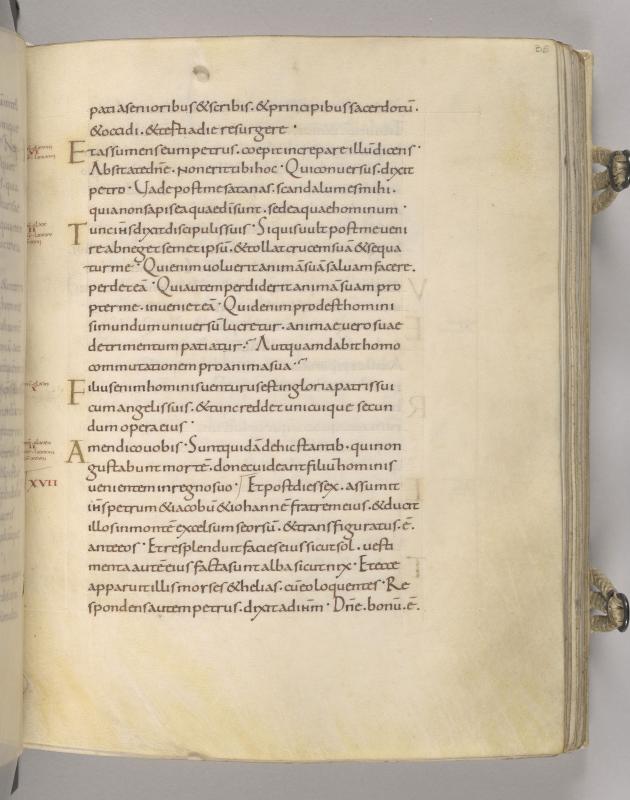 36
pati asenioribus & scribis. & principibus sacerdotū.
& occidi. & tertia die resurgere.
Et assumens eum petrus. coepit increpare illū dicens.
Absit a te dn̄e. Non erit tibi hoc. Qui conversus. dixit
petro. Vade post me satanas. scandalum es mihi.
quia non sapis ea quae dī sunt. sed ea quae hominum.
Tunc ih̄s dixit discipulis suis. Si quis uult post me ueni
re abneget semet ipsū. & tollat crucem suā & sequa
tur me. Qui enim voluerit animā suā saluam facere.
perdet eā. Qui autem perdiderit animā suam pro
pter me. inueniet eā. Quid enim prodest homini
si mundum uniuersū lucretur. animae uero suae
detrimentum patiatur. Aut quam dabit homo
commutationem pro anima sua.
Filius enim hominis uenturus est in gloria patris sui
cum angelis suis. & tunc reddet unicuique secun
dum opera eius.
Amen dico uobis. Sunt quidā de hic stantib. qui non
gustabunt mortē. donec uideant filiū hominis
uenientem in regno suo. Et post dies sex. assumit
XVII
ih̄s petrum & iacobū & iohannē fratrem eius. & ducit
illos in montē excelsum seorsū. & transfiguratus. ē.
ante eos. Et resplenduit facies eius sicut sol. uesti
menta autē eius facta sunt alba sicut nix. Et ecce
apparuit illis moyses & helias. cū eo loquentes. Re
spondens autem petrus. dixit ad ih̄m. Dn̄e. bonū. ē.